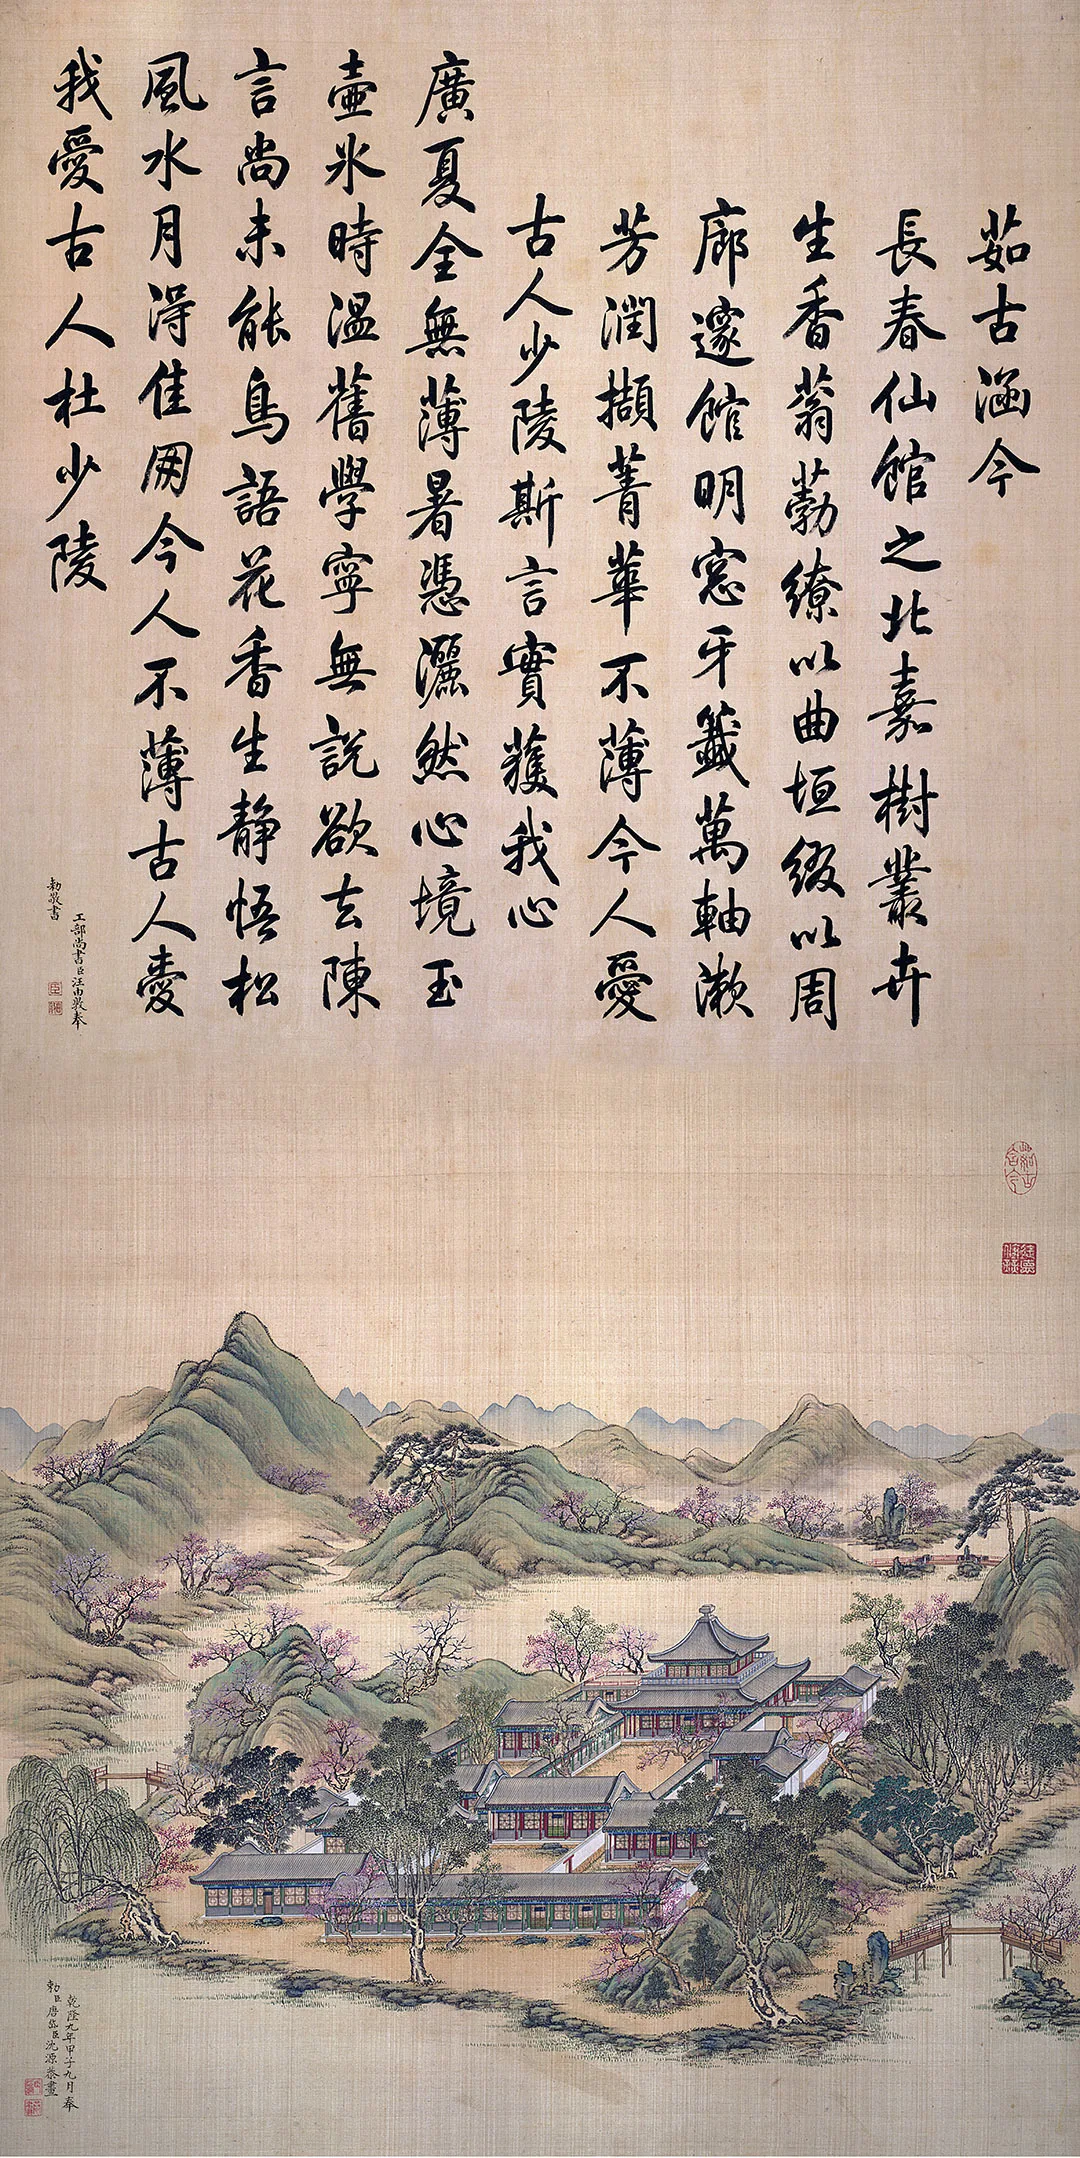 茹古涵今
長春仙館之北嘉樹叢卉
生香蓊葧繚以曲垣綴以周
廊邃館明窓牙籤萬軸漱
芳潤擷菁華不薄今人愛
古人少陵斯言實獲我心
廣夏全無薄暑憑灑然心境玉
壺氷時溫舊學寧無說欲去陳
言尚未能鳥語花香生靜悟松
風水月淂佳朋今人不薄古人愛
我愛古人杜少陵
工部尚書臣汪由敦奉
勅敬書
茹古含今
乾隆九年甲子九月奉
勅臣唐岱臣沈源恭畫